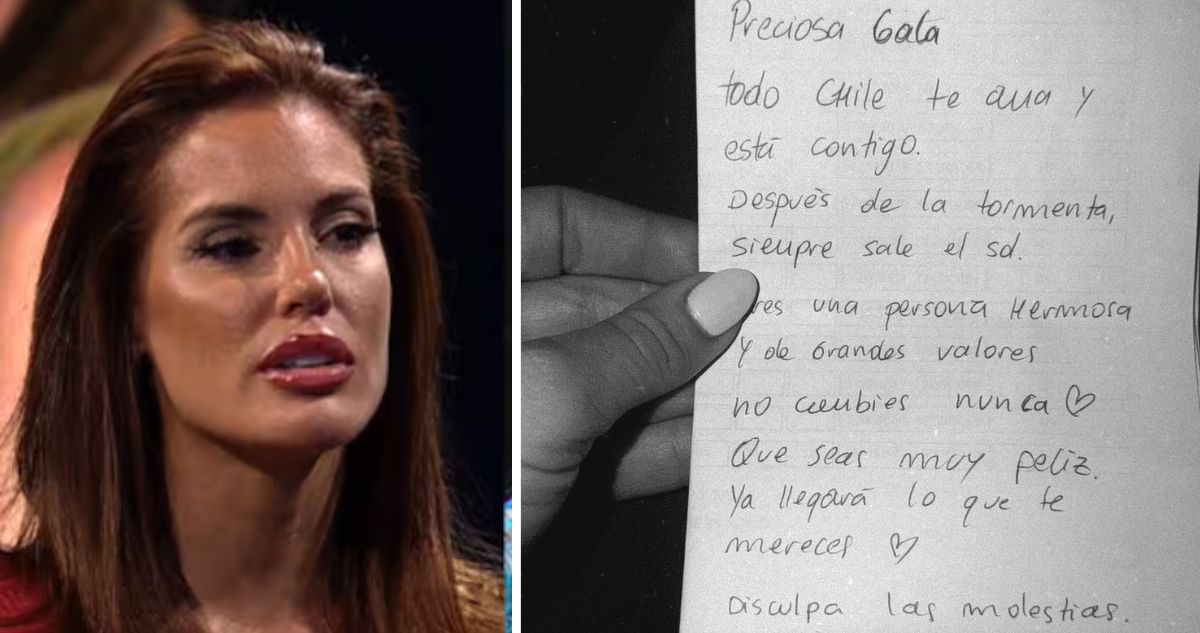 Preciosa Gala
todo CHile te ama y
está contigo.
Después de la tormenta,
siempre sale el sol.
res una persona Hermosa
Y de Grandes valores
no cambies nunca ♡
Que seas muy feliz.
Ya llegará lo que te
mereces ♡
Disculpa las molestias.